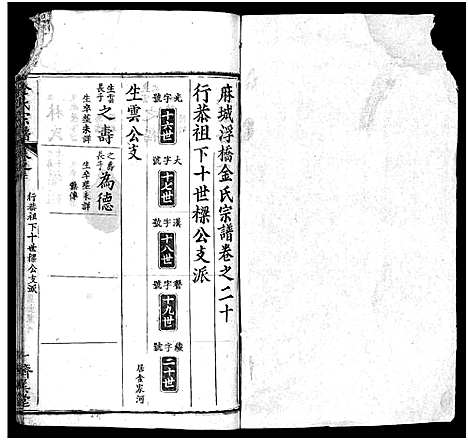 麻城浮橋金氏宗譜卷之二十
行恭祖下十世樑公支派
光字號
十六世
大字號
十七世
漢字號
十八世
字號
十九世
字號
二十世
居金家河
生雲公支
生雲長子
之壽
生卒塟未詳
之壽長子
為德
生卒塟未詳
氏宗譜
行恭祖下十世樑公支派
一